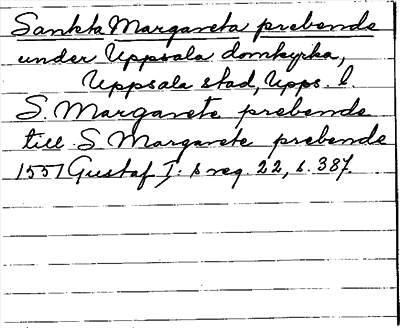 Sankta Margareta prebende
under Uppsala domkyrka,
Uppsala stad, Upps. l.
S. Margarete prebende
till S Margarete prebende
1551 Gustaf I: s reg. 22, s. 387.